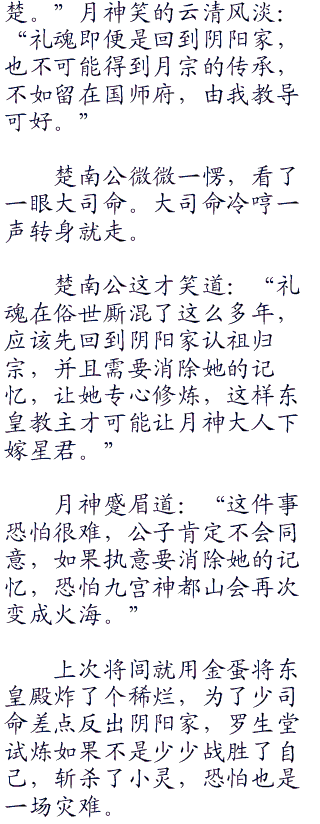 楚。”月神笑的云清风淡：
“礼魂即便是回到阴阳家，
也不可能得到月宗的传承，
不如留在国师府，由我教导
可好。”
楚南公微微一愣，看了
一眼大司命。大司命冷哼一
声转身就走。
楚南公这才笑道：“礼
魂在俗世厮混了这么多年，
应该先回到阴阳家认祖归
宗，并且需要消除她的记
忆，让她专心修炼，这样东
皇教主才可能让月神大人下
嫁星君。”
月神蹙眉道：“这件事
恐怕很难，公子肯定不会同
意，如果执意要消除她的记
忆，恐怕九宫神都山会再次
变成火海。”
上次将闾就用金蛋将东
皇殿炸了个稀烂，为了少司
命差点反出阴阳家，罗生堂
试炼如果不是少少战胜了自
己，斩杀了小灵，恐怕也是
一场灾难。